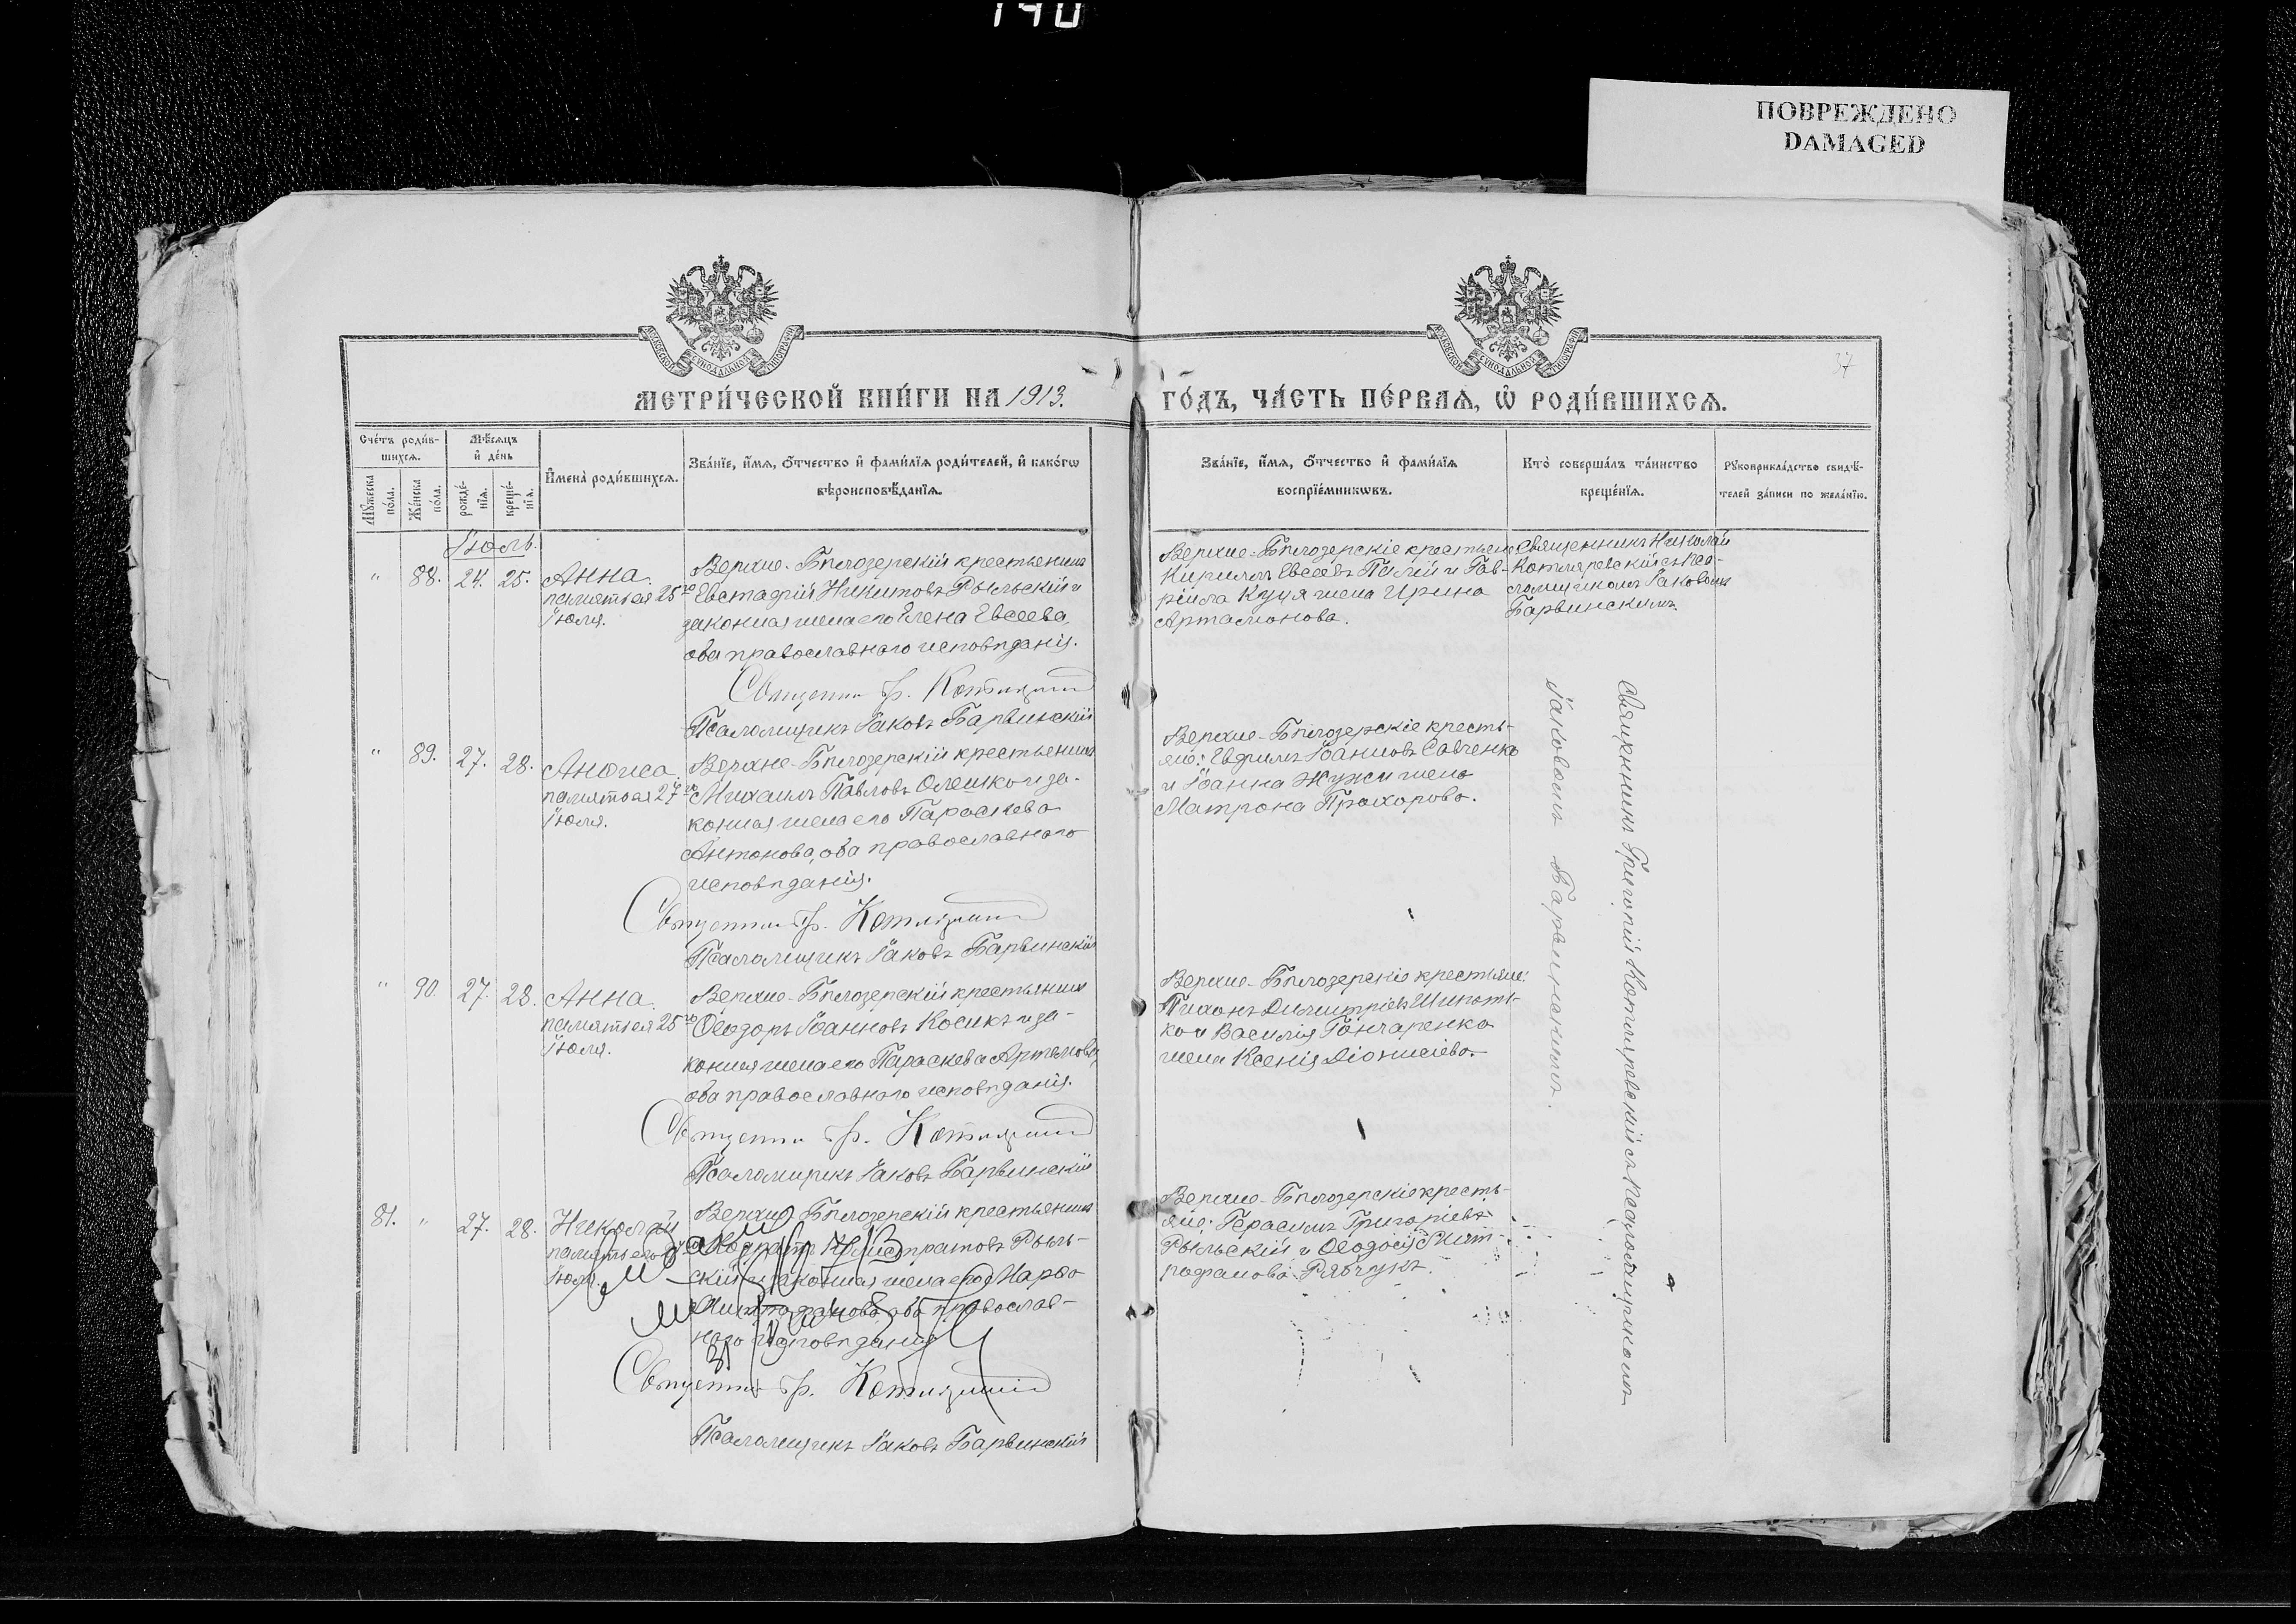 140
ПОВРЕЖДЕНО
DAMAGED
37
МЕТРИ́ЧЕСКОЙ КНИ́ГИ НА 1913.
ГО́ДЪ, ЧА́СТЬ ПЕ́РВАЯ, Ѡ РОДИ́ВШИХСЯ.
Сче́тъ роди́в-
шихся.
Мѣ́сяцъ
и҆ де́нь
Му́жеска
по́ла.
Же́нска
по́ла.
рожде́-
нїя.
креще́-
нїя.
И҆мена̀ роди́вшихся.
Зва́нїе, и҆́мя, ѻ҆́тчество и҆ фами́лїя роди́телей, и҆ како́гѡ
вѣроисповѣ́данїя.
Зва́нїе, и҆́мя, ѻ҆́тчество и҆ фами́лїя
воспрїе́мникѡвъ.
Кто̀ соверша́лъ та́инство
креще́нїя.
Рꙋкоприкла́дство свидѣ́-
телей за́писи по жела́нїю.
Іюль.
" 88. 24. 25. Анна.
памятьея 25го
Іюля.
Верхне-Бѣлозерскій крестьянинъ
Евстафій Никитовъ Рыльскій и
законная жена его Елена Евсеева,
оба православнаго исповѣданія.
Священникъ Гр. Котляревскій
Псаломщикъ Іаковъ Барвинскій
Верхне-Бѣлозерскіе крестьяне
Кириллъ Евсеевъ Палій и Гав-
ріила Куця жена Ирина
Артамонова.
Священникъ Николай
Котляревскій съ Пса-
ломщикомъ Іаковомъ
Барвинскимъ.
" 89. 27. 28. Анѳиса.
памятьея 27го
Іюля.
Верхне-Бѣлозерскій крестьянинъ
Михаилъ Павловъ Олешко и за-
конная жена его Параскева
Антонова, оба православнаго
исповѣданія.
Священникъ Гр. Котляревскій
Псаломщикъ Іаковъ Барвинскій
Верхне-Бѣлозерскіе кресть-
яне: Евфимъ Іоанновъ Савченко
и Іоанна Жужи жена
Матрона Прохорова.
" 90. 27. 28. Анна.
памятьея 25го
Іюля.
Верхне-Бѣлозерскій крестьянинъ
Ѳеодоръ Іоанновъ Косикъ и за-
конная жена его Параскева Артемова,
оба православнаго исповѣданія.
Священникъ Гр. Котляревскій
Псаломщикъ Іаковъ Барвинскій
Верхне-Бѣлозерскіе крестьяне:
Тихонъ Димитріевъ Шипоть-
ко и Василія Гончаренка
жена Ксенія Діонисіева.
81. " 27. 28. Николай
память его
Іюля.
Верхне-Бѣлозерскій крестьянинъ
Рыль-
скій и законная жена его Марѳа
Митрофанова, оба православ-
наго исповѣданія
Священникъ Гр. Котляревскій
Псаломщикъ Іаковъ Барвинскій
Верхне-Бѣлозерскіе кресть-
яне: Герасимъ Григоріевъ
Рыльскій и Ѳеодосія Мит-
рофанова Рябчукъ.
Священникъ Григорій Котляревскій съ Псаломщикомъ
Іаковомъ Барвинскимъ.